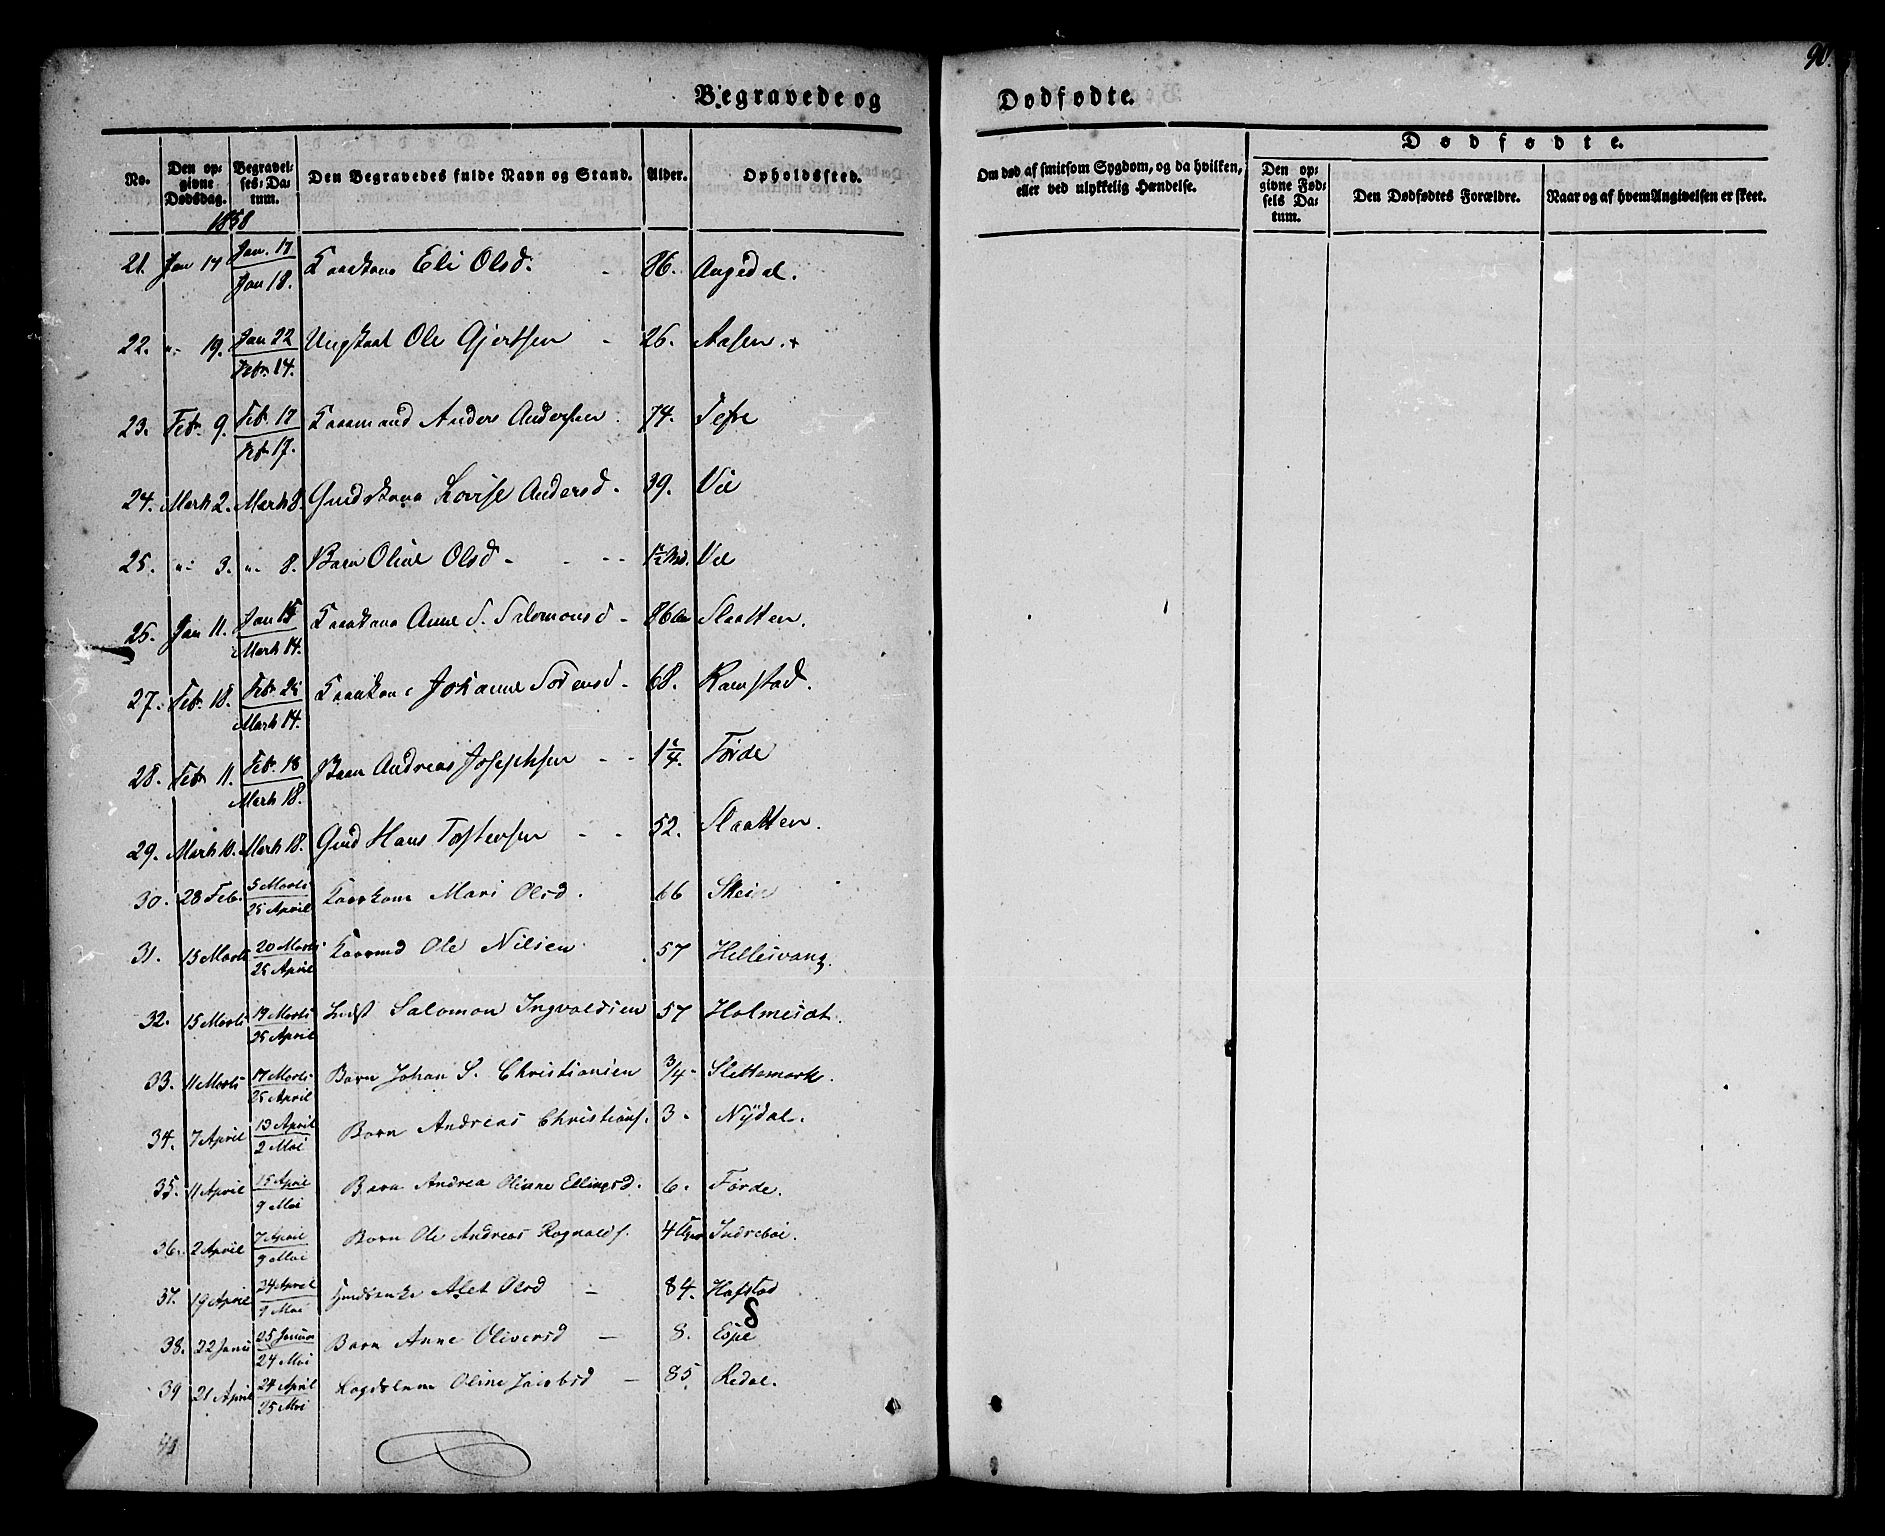 90.
Begravede og Dødfødte.
No. Den opgivne Dødsdag. Begravelses-Datum. Den Begravedes fulde Navn og Stand. Alder. Opholdsted. Om død af smitsom Sygdom, og da hvilken, eller ved ulykkelig Hændelse. Dødfødte. Den opgivne Fødsels Datum. Den Dødfødtes Forældre. Naar og af hvem Angivelsen er skeet.
1858
21. Jan 14 Jan. 17 / Jan 18. Kaarkone Eli Olsd. 86. Angedal.
22. " 19. Jan 22 / Febr. 14. Ungkaal Ole Gjertsen 26. Aasen. +
23. Feb. 9. Feb. 17 / Feb 17. Kaarmand Anders Andersen 74. Tefre
24. Marts 2. Marts 8. Gmdskone Lovise Andersd. 39. Vie
25. " 3. " 8. Barn Oline Olsd - Vie
25. Jan 11. Jan 15 / Marts 14. Kaarkone Anne S. Salomonsd - 86 Aar Slaatten.
27. Feb. 18. Feb. 25 / Marts 14. Kaarkone Johanne Sørensd - 68. Ramstad.
28. Feb. 11. Feb. 18 / Marts 18. Barn Andreas Josephsen - - 1 1/4. Førde
29. Marts 10. Marts 18. Gmd Hans Tostensen - - 52. Slaatten.
30. 28 Feb. 5 Marts / 25 April Kaarkone Mari Olsd. 66 Skei
31. 15 Marts 20 Marts / 25 April Kaarmd Ole Nilsen 57 Hellesvang.
32. 15 Marts 19 Marts / 25 April Indst Salomon Ingvaldsen 57 Holmesæt.
33. 11 Marts 17 Marts / 25 April Barn Johan S. Christiansen 3/4 - Slettemark.
34. 7 April 13 April / 2 Mai Barn Andreas Christians. 3 - Nÿdal.
35. 11 April 15 April / 9 Mai Barn Andrea Oline Ellingsd. 6. Førde.
36. 2 April 7 April / 9 Mai Barn Ole Andreas Rognalds. 4 Uger Indrebøe.
37. 19 April 24 April / 9 Mai Huusenke Alet Olsd - 84. Hafstad
38. 22 Janu 25 Januar / 24 Mai Barn Anne Oliversd - 8. Espe
39 21 April 24 April / 25 Mai Lægdslem Oline Jacobsd - 85. Redal.